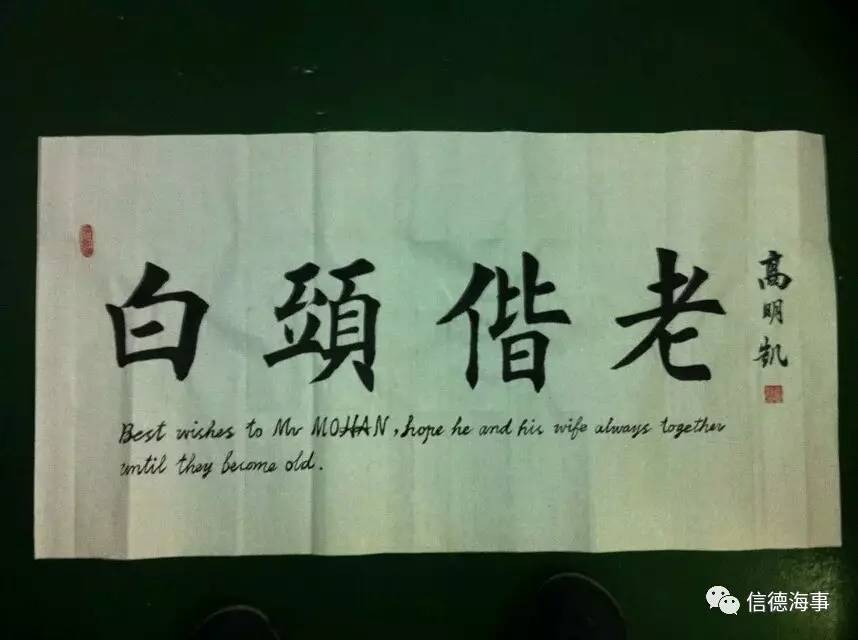 白頭偕老
高明凯
Best wishes to Mr MOHAN, hope he and his wife always together
until they become old.
信德海事